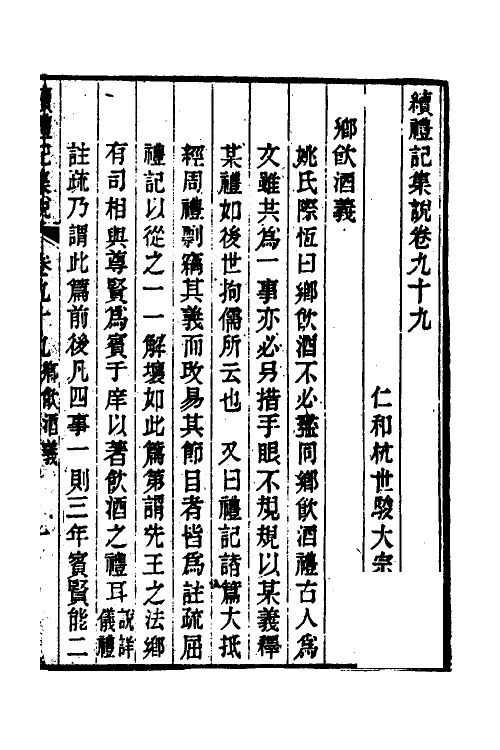 續禮記集說卷九十九
仁和杭世駿大宗
鄉飲酒義
姚氏際恆曰鄉飲酒不必盡同鄉飲酒禮古人為
文雖共為一事亦必另措手眼不規規以某義釋
某禮如後世拘儒所云也 又曰禮記諸篇大抵
經周禮剽竊其義而改易其節目者皆為註疏屈
禮記以從之一一解壞如此篇第謂先王之法鄉
有司相與尊賢為賓于庠以著飲酒之禮耳說詳儀禮
註疏乃謂此篇前後凡四事一則三年賓賢能二
續禮記集說 卷九十九 鄉飲酒義 一